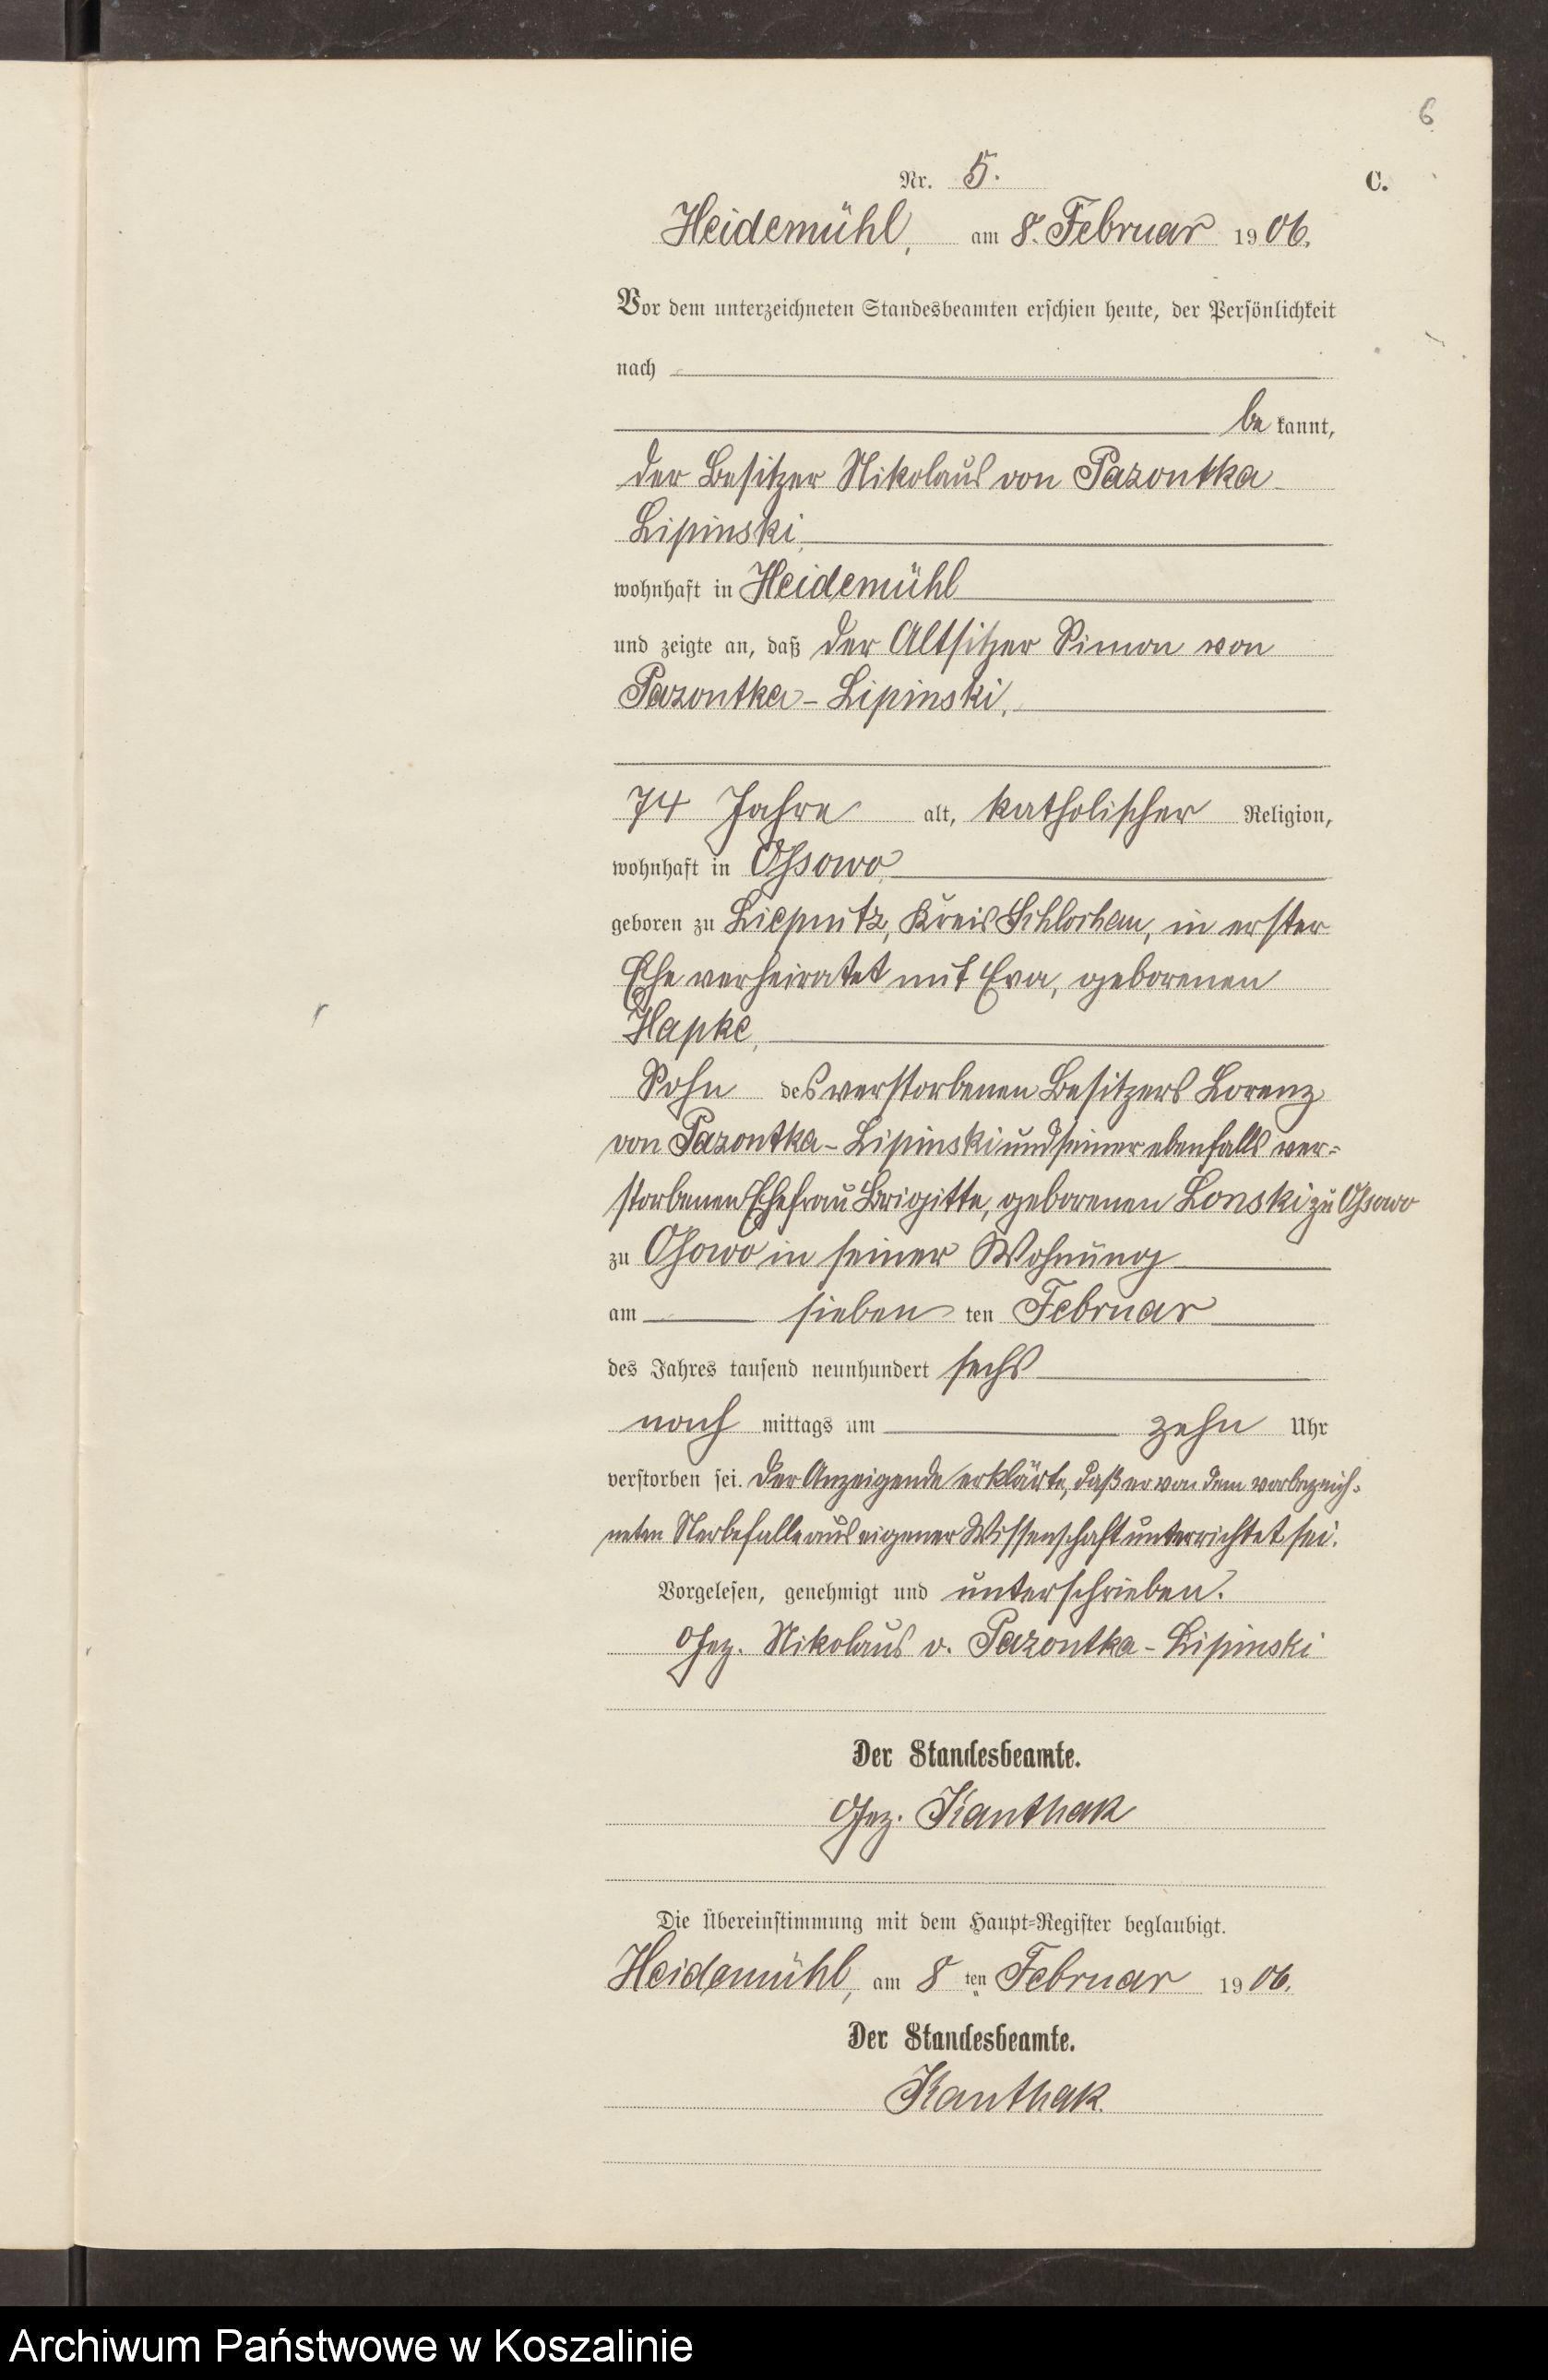 6
Nr. 5. C.
Heidemühl, am 8. Februar 1906.
Vor dem unterzeichneten Standesbeamten erschien heute, der Persönlichkeit
nach
be kannt,
der Besitzer Nikolaus von Pazontka
Lipinski,
wohnhaft in Heidemühl
und zeigte an, daß der Altsitzer Simon von
Pazontka-Lipinski,
74 Jahre alt, katholischer Religion,
wohnhaft in Ossowo,
geboren zu Liepnitz, Kreis Schlochau, in erster
Ehe verheiratet mit Eva, geborenen
Hapke,
Sohn des verstorbenen Besitzers Lorenz
von Pazontka-Lipinski und seiner ebenfalls ver-
storbenen Ehefrau Brigitte, geborenen Lonski zu Ossowo
zu Ossowo in seiner Wohnung
am sieben ten Februar
des Jahres tausend neunhundert sechs
nach mittags um zehn Uhr
verstorben sei. Der Anzeigende erklärte, daß er von dem vorbezeich-
neten Sterbefalle aus eigener Wissenschaft unterrichtet sei.
Vorgelesen, genehmigt und unterschrieben.
Gez. Nikolaus v. Pazontka-Lipinski
Der Standesbeamte.
Gez. Kanthak
Die Übereinstimmung mit dem Haupt-Register beglaubigt.
Heidemühl, am 8 ten Februar 1906.
Der Standesbeamte.
Kanthak.
Archiwum Państwowe w Koszalinie